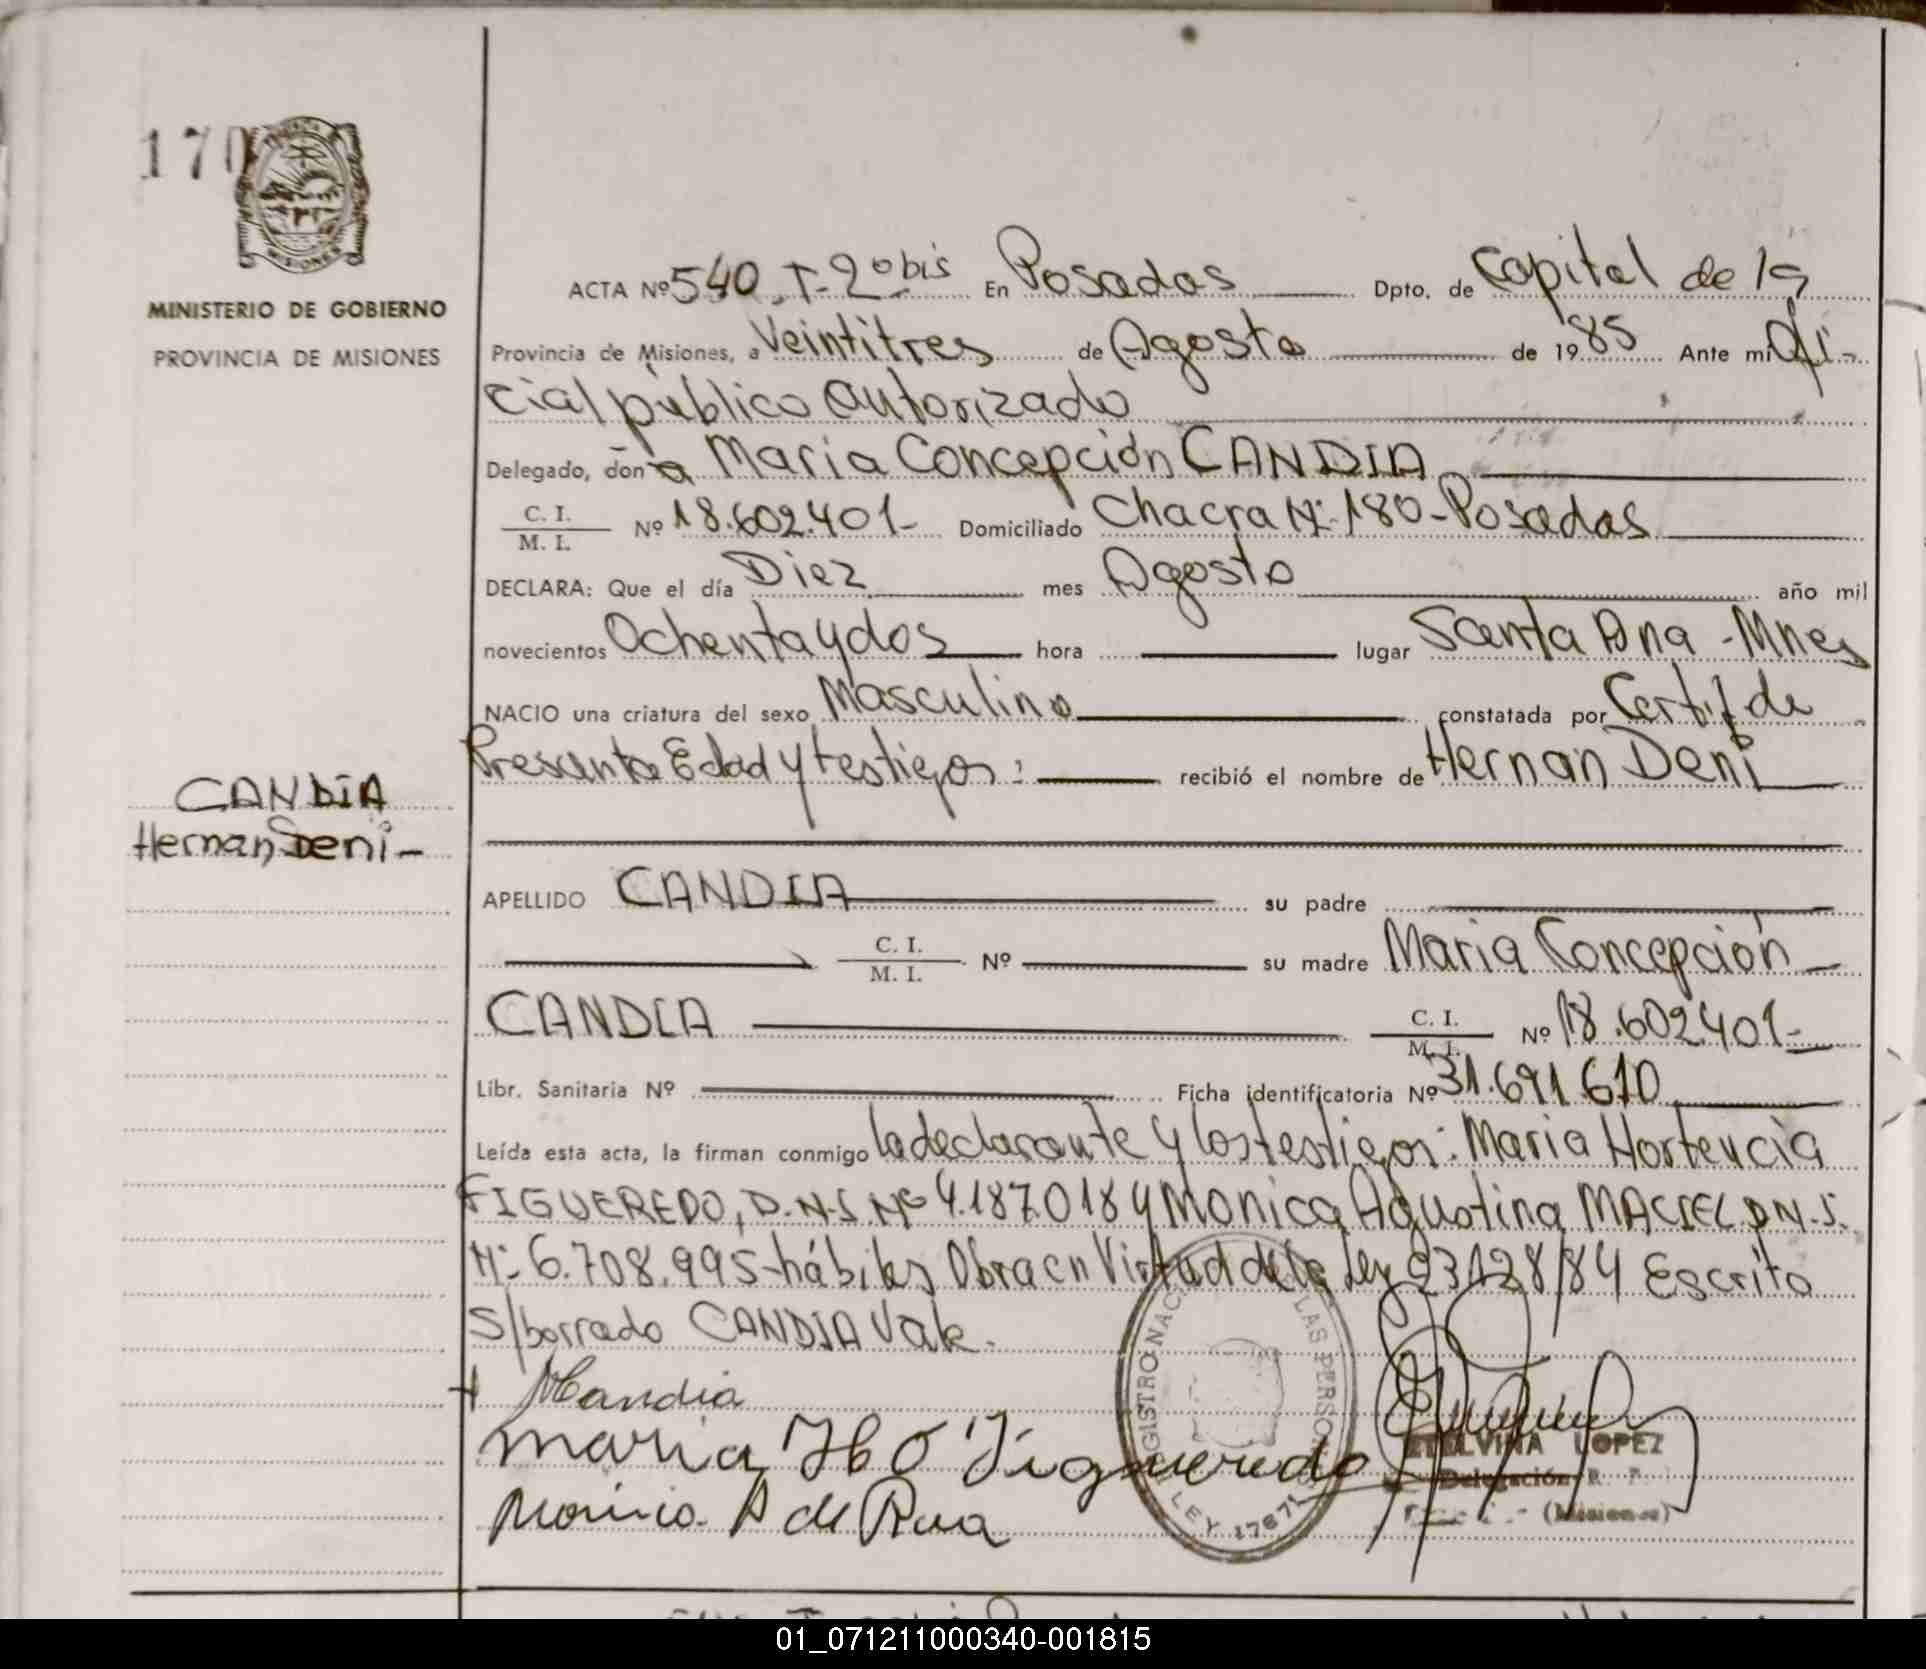 170
MISIONES
MINISTERIO DE GOBIERNO
PROVINCIA DE MISIONES
ACTA Nº 540 T-2º bis En Posadas Dpto. de Capital de la
Provincia de Misiones, a Veintitres de Agosto de 1985 Ante mi Ofi-
cial público autorizado
Delegado, don a Maria Concepción CANDIA
C. I.
M. I. Nº 18.602.401- Domiciliado Chacra Nº 180-Posadas
DECLARA: Que el día Diez mes Agosto año mil
novecientos Ochenta y dos hora lugar Santa Ana - Mnes
NACIO una criatura del sexo Masculino constatada por Certif de
Presunta Edad y testigos: recibió el nombre de Hernan Deni
CANDIA
Hernan Deni-
APELLIDO CANDIA su padre
C. I.
M. I. Nº su madre Maria Concepción
CANDIA C. I.
M. I. Nº 18.602.401-
Libr. Sanitaria Nº Ficha identificatoria Nº 31.691.610
Leída esta acta, la firman conmigo la declarante y los testigos: Maria Hortencia
FIGUEREDO, D.N.I. Nº 4.187.018 y Monica Agustina MACIEL D.N.I.
Nº 6.708.995-hábiles Obra en Virtud de la Ley 23128/84 Escrito
S/borrado CANDIA Vale.
MCandia
Maria H O Figueredo
Monica A de Rua
REGISTRO NAC LAS PERSON
LEY 17671
ETELVINA LOPEZ
Delegación R. P.
(Misiones)
01_071211000340-001815